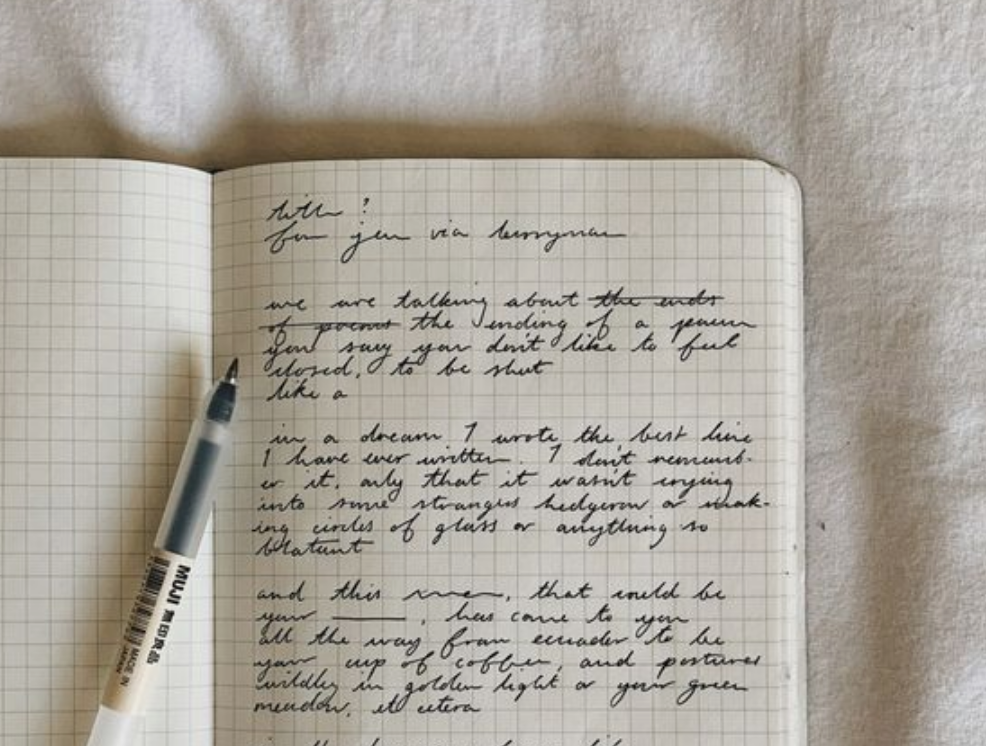 title ?
for jen via berryman
we are talking about the ends
of poems the ending of a poem
you say you don't like to feel
closed, to be shut
like a
in a dream I wrote the best line
I have ever written. I don't rememb-
er it, only that it wasn't crying
into some strangers hedgerow or mak-
ing circles of glass or anything so
blatant
and this, that could be
your ____, has come to you
all the way from ecuador to be
your cup of coffee, and postures
wildly in golden light or your green
meadow, et cetera
MUJI 無印良品
MADE IN
JAPAN